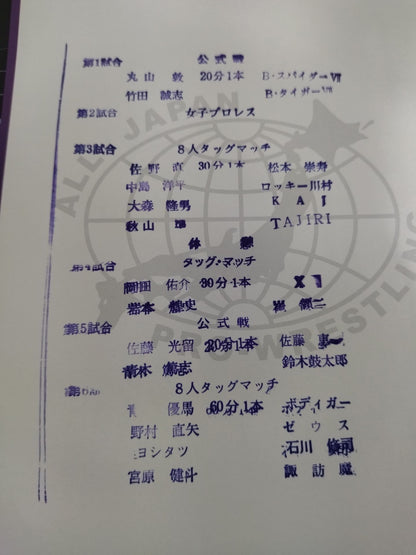 第1試合 公式戦
丸山 敦 20分1本 B・スパイダーⅦ
竹田 誠志 B・タイガーⅦ
第2試合 女子プロレス
第3試合 8人タッグマッチ
佐野 直 30分1本 松本 崇寿
中島 洋平 ロッキー川村
大森 隆男 KAI
秋山 準 TAJIRI
休憩
第4試合 タッグ・マッチ
岡田 佑介 30分1本
岩本 煌史 崔 領二
第5試合 公式戦
佐藤 光留 30分1本 佐藤 恵一
青木 篤志 鈴木鼓太郎
8人タッグマッチ
優馬 60分1本 ボディガー
野村 直矢 ゼウス
ヨシタツ 石川 修司
宮原 健斗 諏訪魔
ALL JAPAN
PRO-WRESTLING